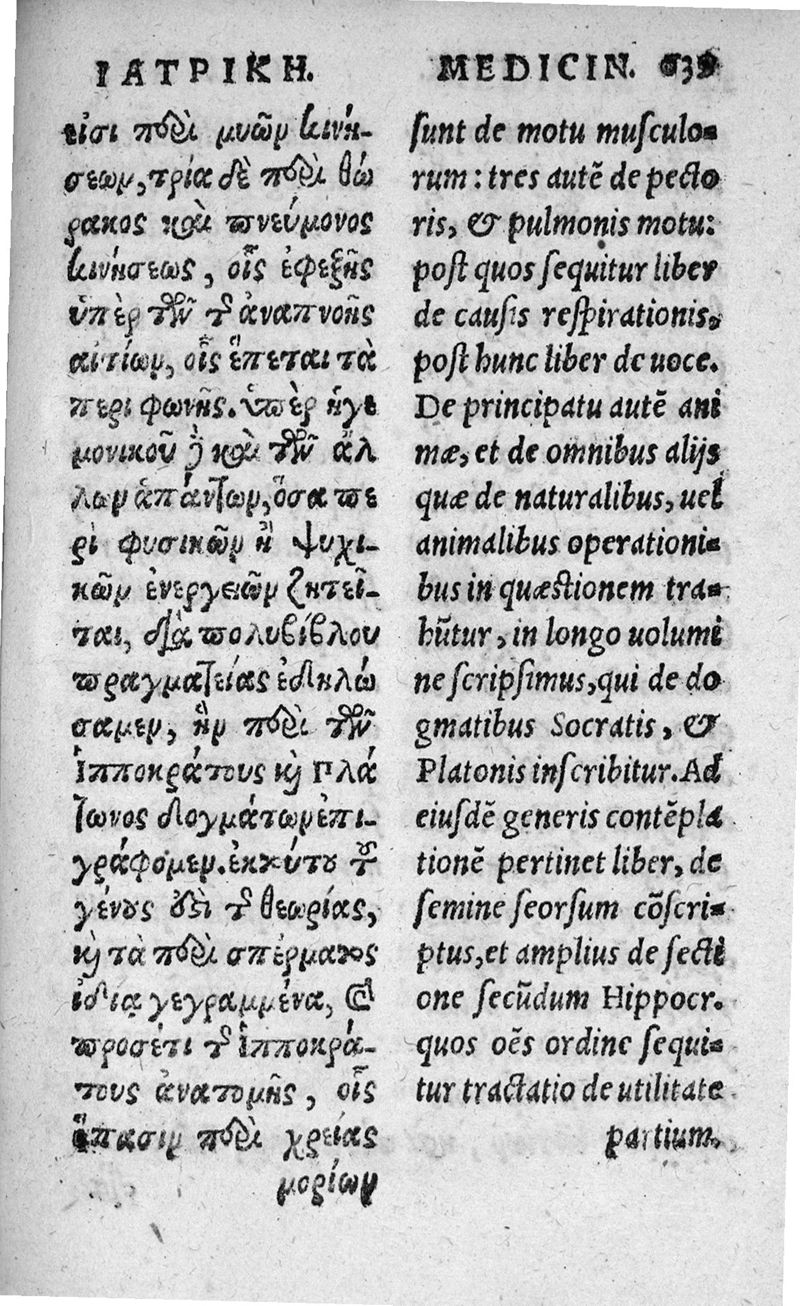 ΙΑΤΡΙΚΗ.
εἰσι περὶ μυῶν κινή-
σεων, τρία δὲ περὶ θώ
ρακος καὶ πνεύμονος
κινήσεως, οἷς ἐφεξῆς
ὑπὲρ τῶν τ͂ ἀναπνοῆς
αἰτίων, οἷς ἕπεται τὰ
περι φωνῆς. ὑπὲρ ἡγε
μονικοῦ ἢ καὶ τῶν ἄλ
λων ἁπάντων, ὅσα πε
ρὶ φυσικῶν ἢ ψυχι-
κῶν ἐνεργειῶν ζητεῖ-
ται, διὰ πολυβίβλου
πραγματείας ἐδηλώ
σαμεν, ἣν περὶ τῶν
Ἱπποκράτους κὶ Πλά
τωνος δογμάτων ἐπι-
γράφομεν. ἐκ τούτου τοῦ
γένους ἐστὶ τ͂ θεωρίας,
κὶ τὰ περὶ σπέρματος
ἰδια γεγραμμένα, καὶ
προσέτι τ͂ Ἱπποκρά-
τους ἀνατομῆς, οἷς
ἅπασιν περὶ χρείας
μορίων
MEDICIN.
sunt de motu musculo-
rum: tres autē de pecto
ris, & pulmonis motu:
post quos sequitur liber
de causis respirationis,
post hunc liber de uoce.
De principatu autē ani
mæ, et de omnibus alijs
quæ de naturalibus, uel
animalibus operationi-
bus in quæstionem tra-
hūtur, in longo uolumi
ne scripsimus, qui de do
gmatibus Socratis, &
Platonis inscribitur. Ad
eiusdē generis contēpla
tionē pertinet liber, de
semine seorsum cōscri-
ptus, et amplius de secti
one secūdum Hippocr.
quos oēs ordine sequi-
tur tractatio de utilitate
partium.